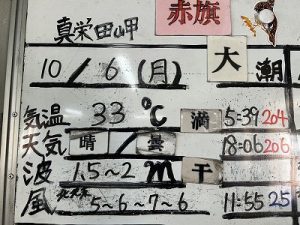 真栄田岬 赤旗
10/6(月) 大潮
気温 33℃ 満 5:39 204
天気 晴/曇 18:06 206
波 1.5~2m 干
風 北北東 5-6-7-6 11:55 25